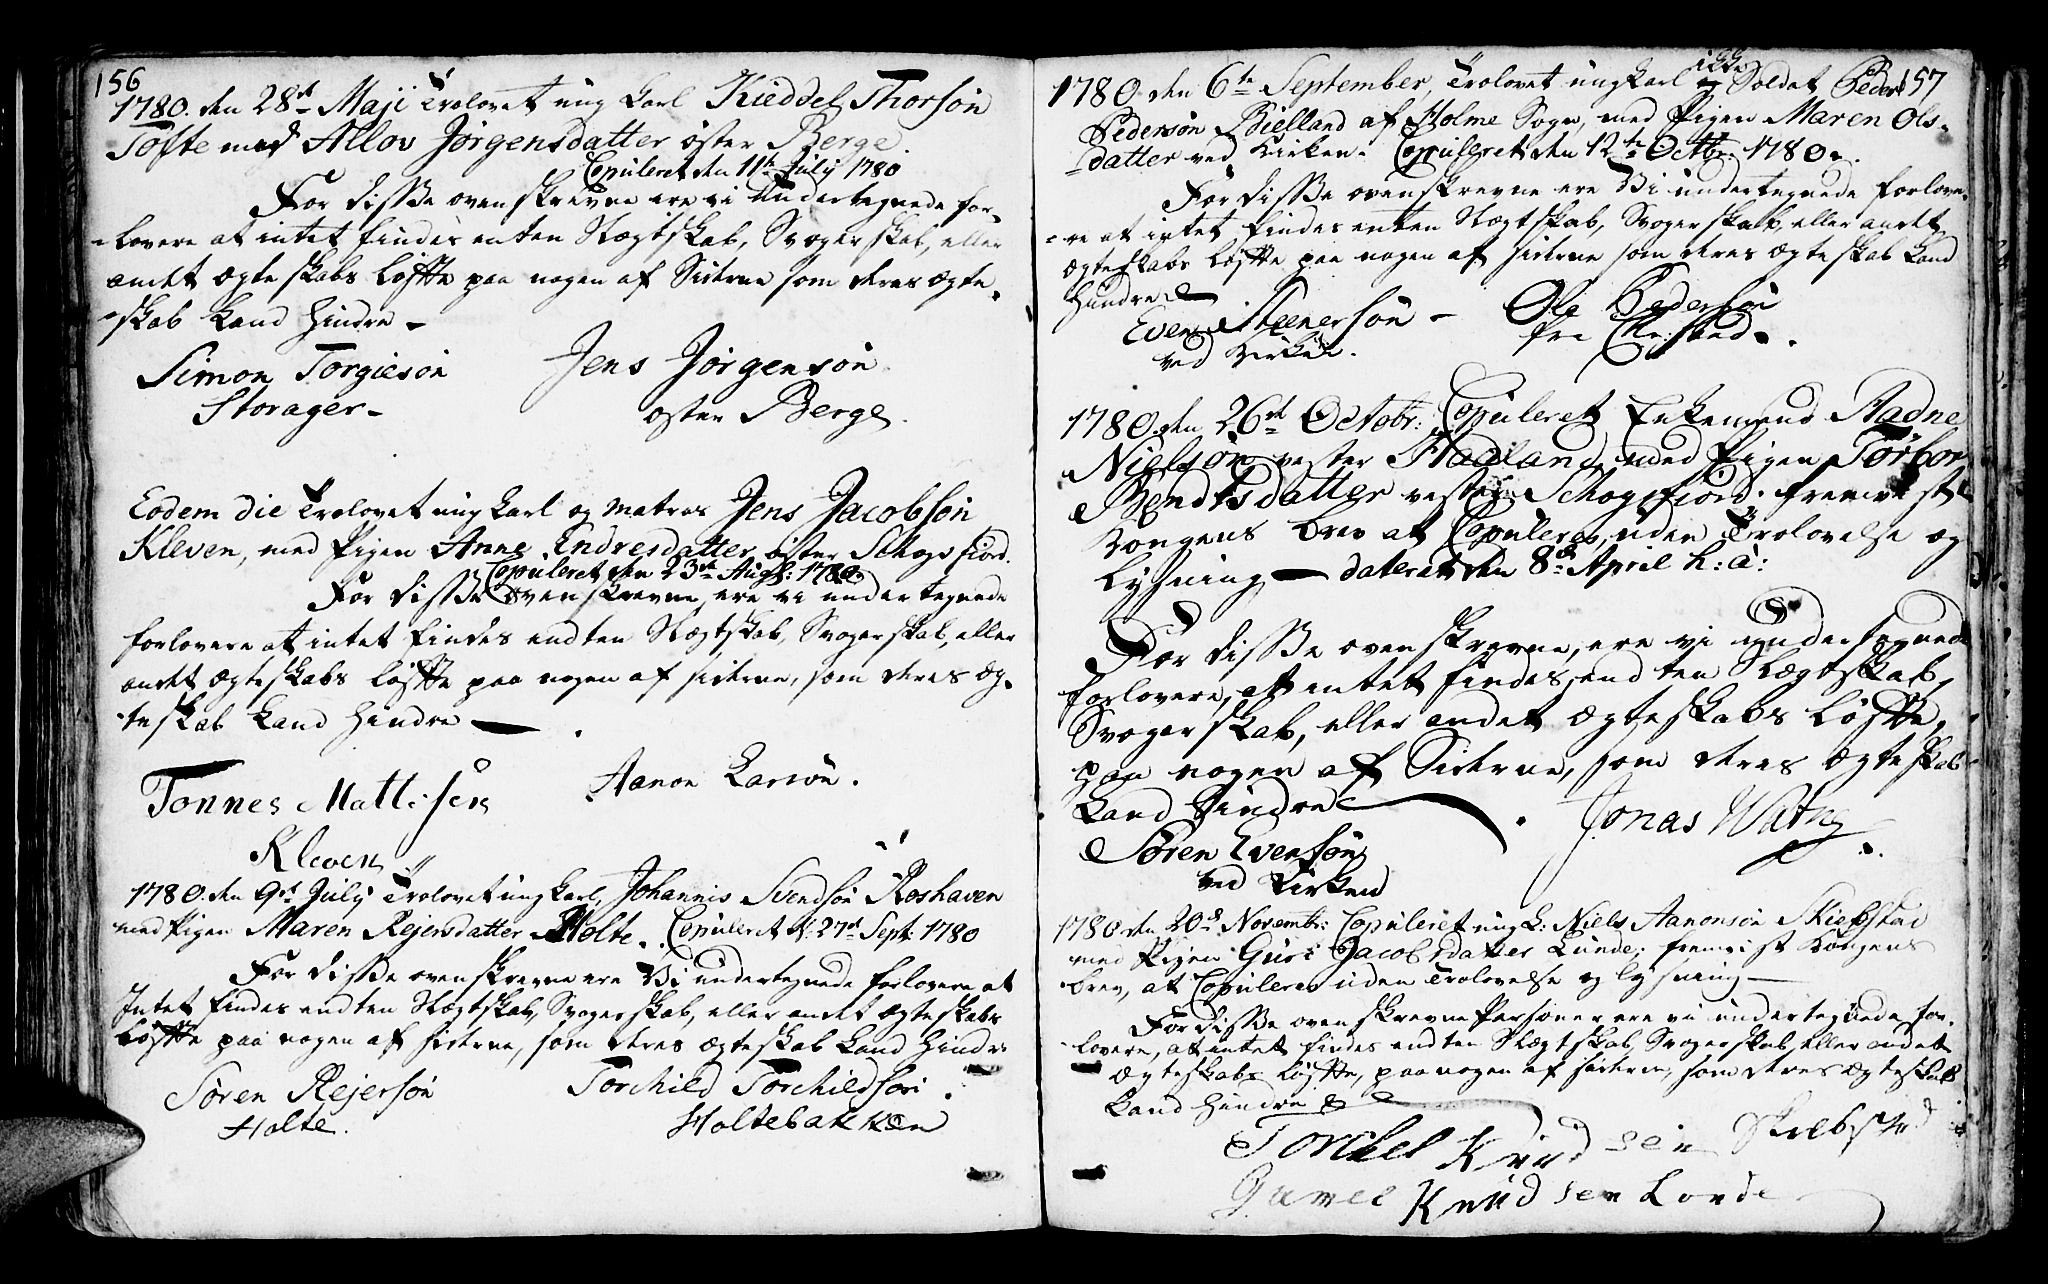 156
1780. den 28de Maji Trolovet ung Karl Kieddel Thorsøn
Tofte med Allov Jørgensdatter øster Berge.
Copuleret den 11te July 1780
For disse ovenskrevne ere vi Undertegnede for-
-lovere at intet findes enten Slægtskab, Svogerskab, eller
andet Ægteskabs Løfte paa nogen af Siderne som deres Ægte-
-skab kand hindre -
Simon Torgiesøn Jens Jørgensøn
Storager - øster Berge.
Eodem die Trolovet ung Karl og Matros Jens Jacobsøn
Kleven, med Pigen Anne Endresdatter øster Schogsfiord.
Copuleret den 23de Aug: 1780.
For disse ovenskrevne, ere vi undertegnede
forlovere at intet findes endten Slægtskab, Svogerskab, eller
andet Ægteskabs Løfte paa nogen af siderne, som deres Æg-
-teskab kand hindre
Tonnes Mattisen Aanon Larsøn.
Kleven
1780. den 9de July Trolovet ung Karl, Johannis Svendsøn Roshaven
med Pigen Maren Rejersdatter Holte. Copuleret d. 27de Sept. 1780
For disse ovenskrevne ere Vi undertegnede forlovere at
Intet findes endten Slægtskab, Svogerskab, eller andet Ægteskabs
Løfte paa nogen af siderne, som deres Ægteskab kand hindre
Søren Rejersøn Torchild Torchildsøn.
Holte. Holtebakken
157
1780. den 6te September, Trolovet ungkarl Soldat Peder
Pedersøn Bielland af Holme Sogn, med Pigen Maren Ols-
-datter ved Kirken. Copuleret den 12te Octbr: 1780.
For disse ovenskrevne ere Vi undertegnede forlove-
-re at intet findes enten Slægtskab, Svogerskab, eller andet
Ægteskabs Løfte paa nogen af siderne som deres Ægteskab kand
hindre
Even Steenersøn - Ole Pedersøn
ved Kirken. fra Chr:sand.
1780. den 26de Octobr: Copuleret Enkemand Aadne
Nielsøn vester Haaland, med Pigen Torbor
Bendtsdatter vester Schogsfiord. fremviist
Kongens brev at Copuleres, uden Trolovelse og
Lysning - dateret den 8de April h: a:
For disse ovenskrevne, ere vi undertegnede
forlovere, at intet findes, endten Slægtskab,
Svogerskab, eller andet Ægteskabs Løfte,
paa nogen af Siderne, som deres Ægteskab
kand hindre
Søren Evensøn Jonas Watne
ved Kirken
1780 den 20de Novembr: Copuleret ung K: Niels Aanonsøn Skiebstad
med Pigen Guri Jacobsdatter Lunde; fremvist Kongens
brev, at Copuleres uden Trolovelse og lysning -
For disse ovenskrevne Personer ere vi undertegnede for-
-lovere, at intet findes endten Slægtskab, Svogerskab, eller andet
Ægteskabs Løfte, paa nogen af siderne, som deres Ægteskab
kand hindre
Torckel Knudsen
Knudsen